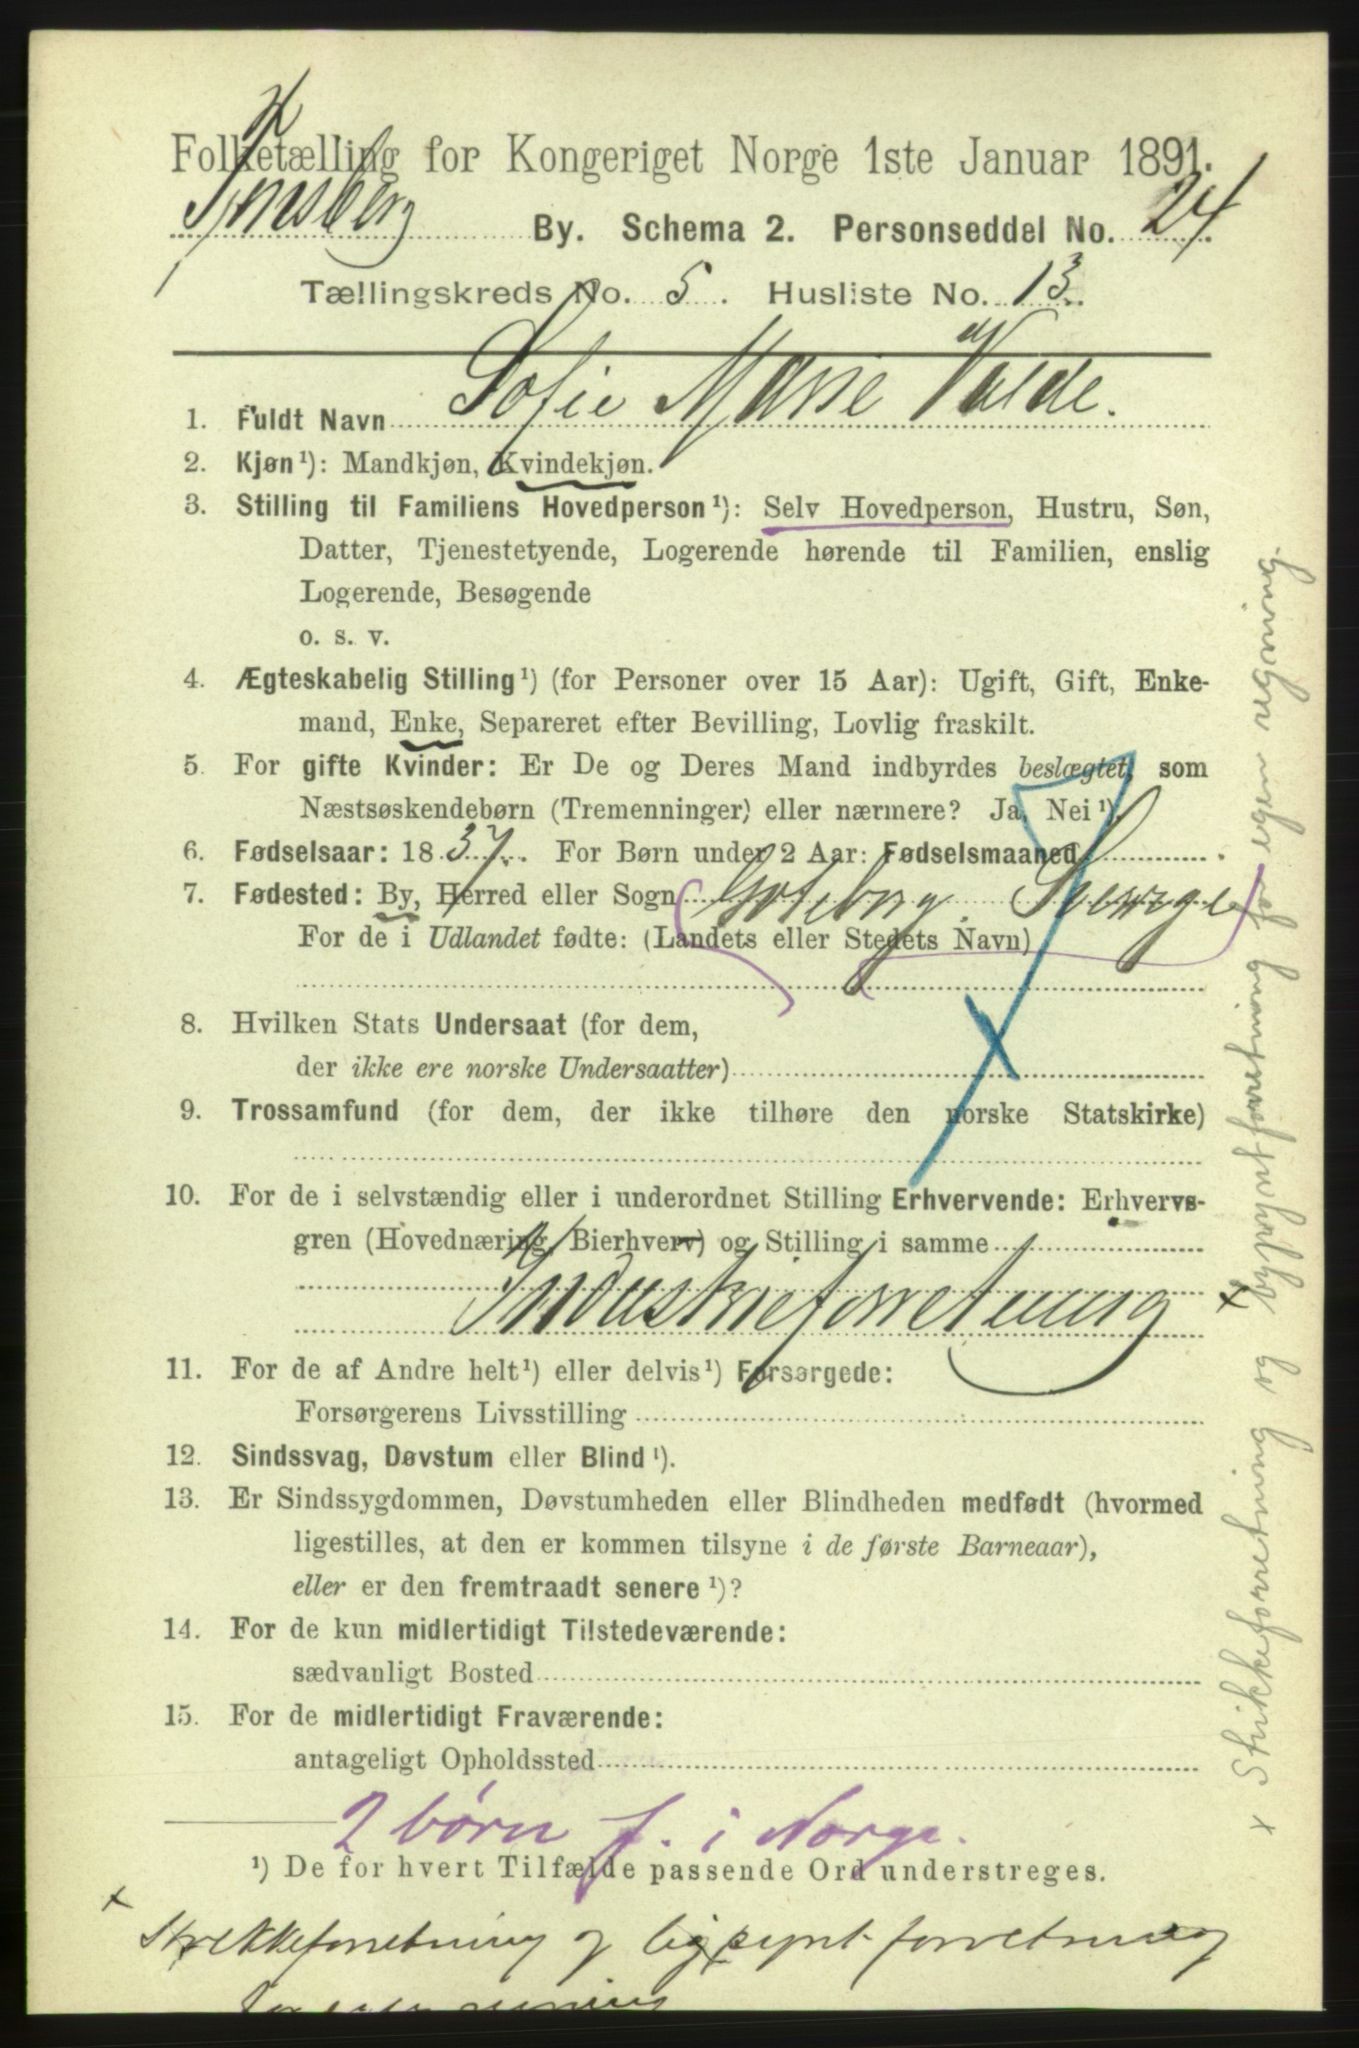 Folketælling for Kongeriget Norge 1ste Januar 1891.
Tønsberg By. Schema 2. Personseddel No. 24
Tællingskreds No. 5. Husliste No. 13.
1. Fuldt Navn Sofie Marie Valde.
2. Kjøn¹): Mandkjøn, Kvindekjøn.
3. Stilling til Familiens Hovedperson¹): Selv Hovedperson, Hustru, Søn,
Datter, Tjenestetyende, Logerende hørende til Familien, enslig
Logerende, Besøgende
o. s. v.
4. Ægteskabelig Stilling¹) (for Personer over 15 Aar): Ugift, Gift, Enke-
mand, Enke, Separeret efter Bevilling, Lovlig fraskilt.
5. For gifte Kvinder: Er De og Deres Mand indbyrdes beslægtet, som
Næstsøskendebørn (Tremenninger) eller nærmere? Ja, Nei¹).
6. Fødselsaar: 1837. For Børn under 2 Aar: Fødselsmaaned
7. Fødested: By, Herred eller Sogn Gøteborg. Sverrge
For de i Udlandet fødte: (Landets eller Stedets Navn)
8. Hvilken Stats Undersaat (for dem,
der ikke ere norske Undersaatter)
9. Trossamfund (for dem, der ikke tilhøre den norske Statskirke)
10. For de i selvstændig eller i underordnet Stilling Erhvervende: Erhvervs-
gren (Hovednæring, Bierhverv) og Stilling i samme
Industrieforretning x
11. For de af Andre helt¹) eller delvis¹) Forsørgede:
Forsørgerens Livsstilling
12. Sindssvag, Døvstum eller Blind¹).
13. Er Sindssygdommen, Døvstumheden eller Blindheden medfødt (hvormed
ligestilles, at den er kommen tilsyne i de første Barneaar),
eller er den fremtraadt senere¹)?
14. For de kun midlertidigt Tilstedeværende:
sædvanligt Bosted
15. For de midlertidigt Fraværende:
antageligt Opholdssted
2 børn f. i Norge.
¹) De for hvert Tilfælde passende Ord understreges.
x
Strikkeforretning og ligpyntforretning
for egen regning
x Strikkeforretning og ligpyntforretning for egen regning.